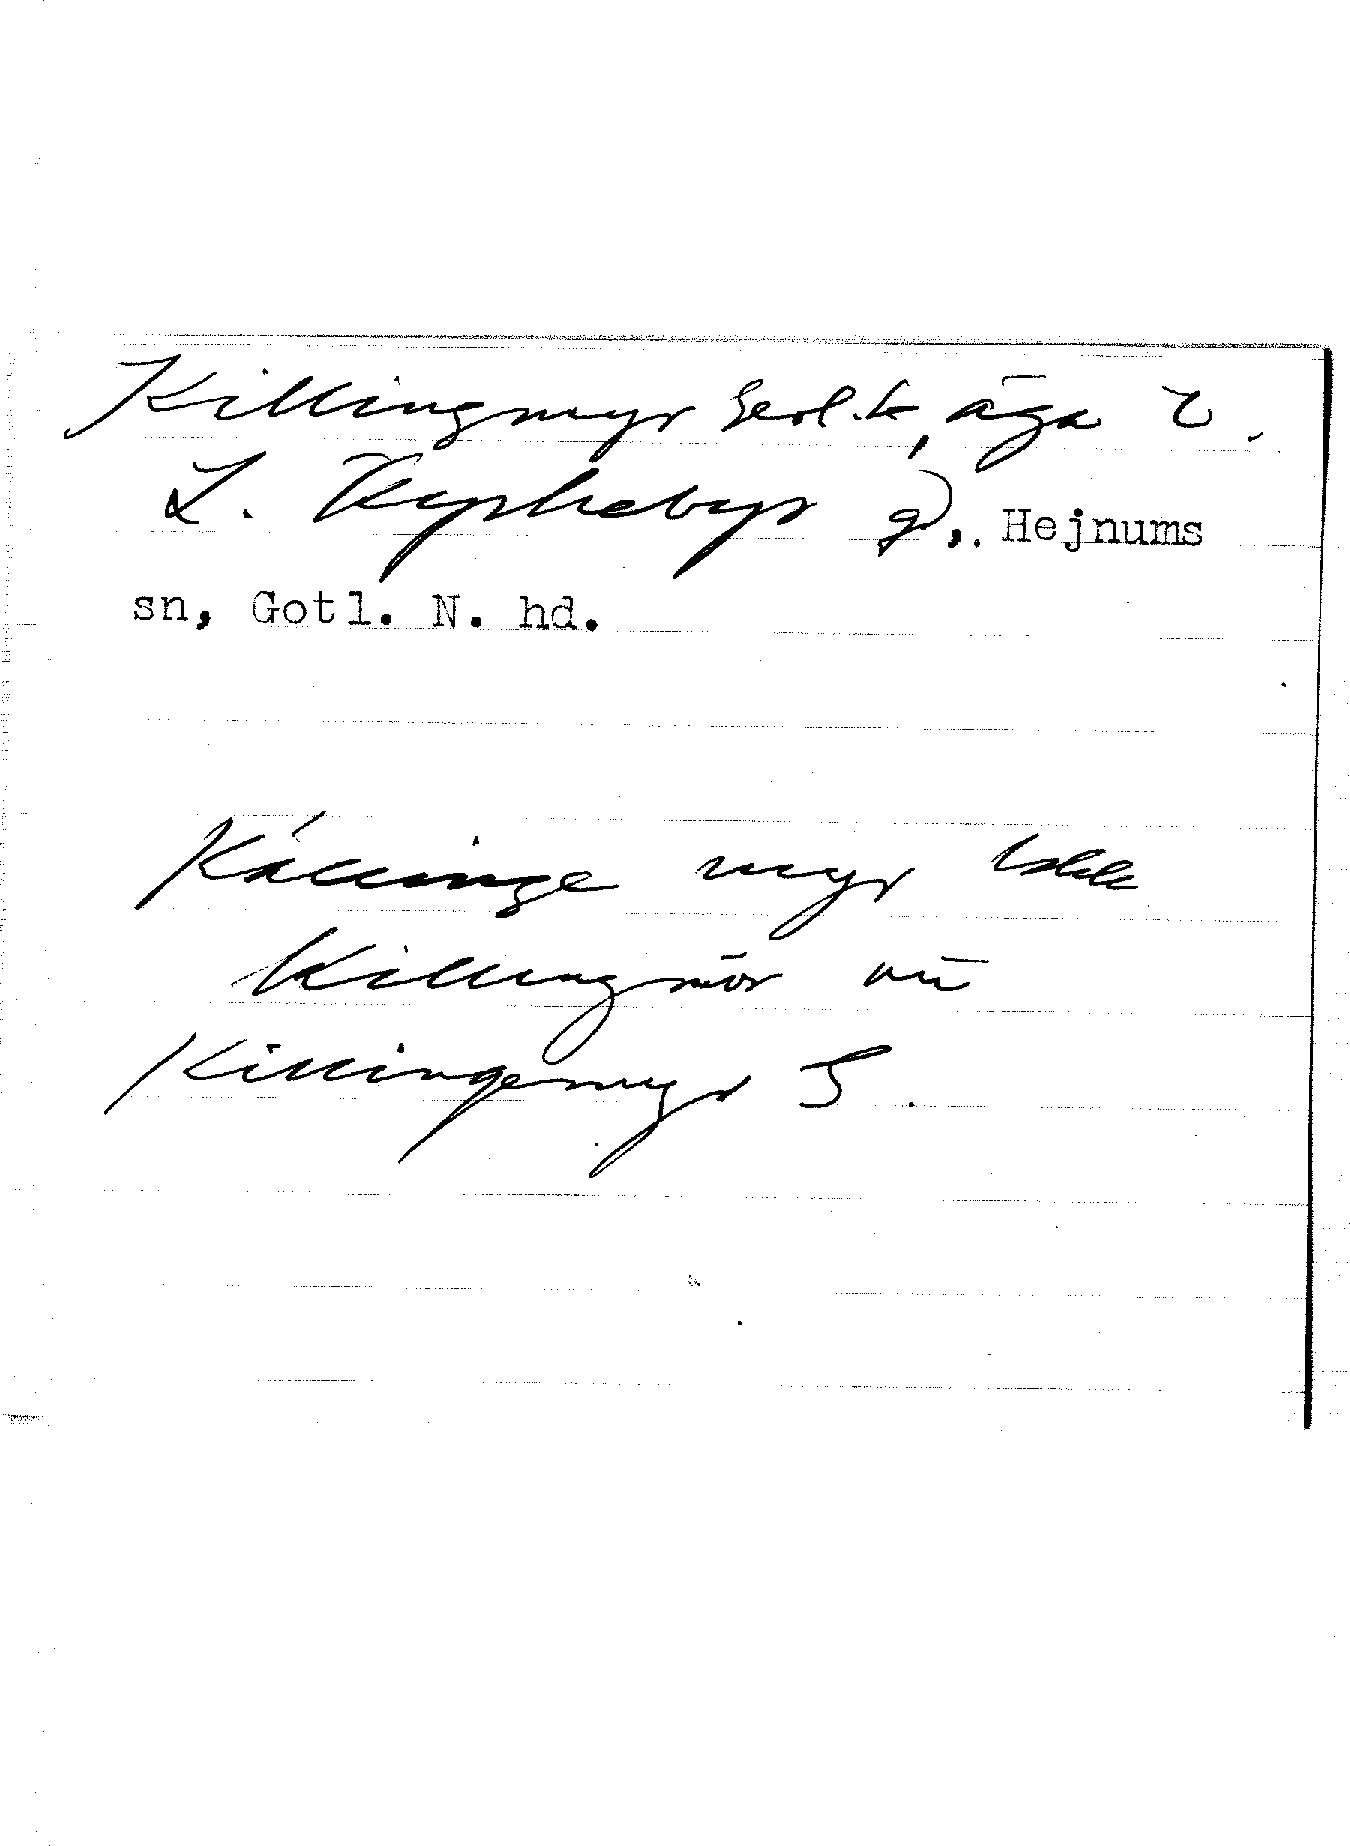 Killingmyr Geol.k, äga t.
L. Kyphebys gd, Hejnums
sn, Gotl. N. hd.
Källinge myr
Killingmör nu
Killingemyr S.